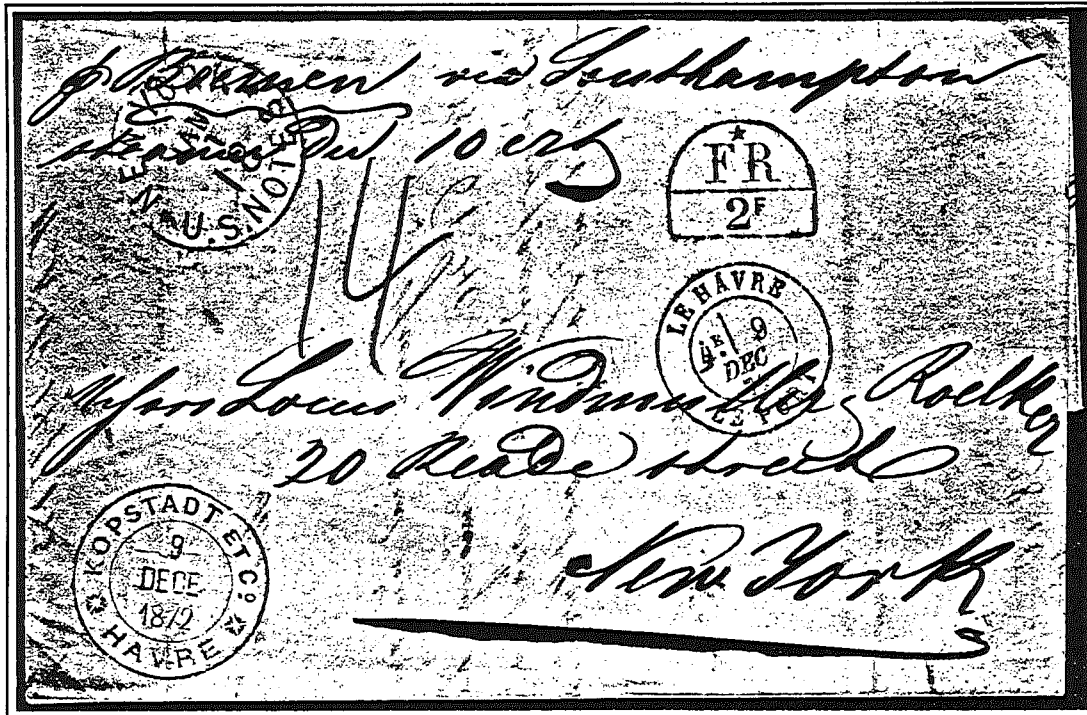 p Bremen via Southampton
steamer Du 10 crt
5
NEW YORK
JAN
1
U.S. NOTES
14
★
FR
2F
LE HAVRE
4E
9
DEC
LE PORT
Messrs Louis Windmuller & Roelker
20 Reade street
New York
KOPSTADT ET Co
9
DECE
1872
HAVRE